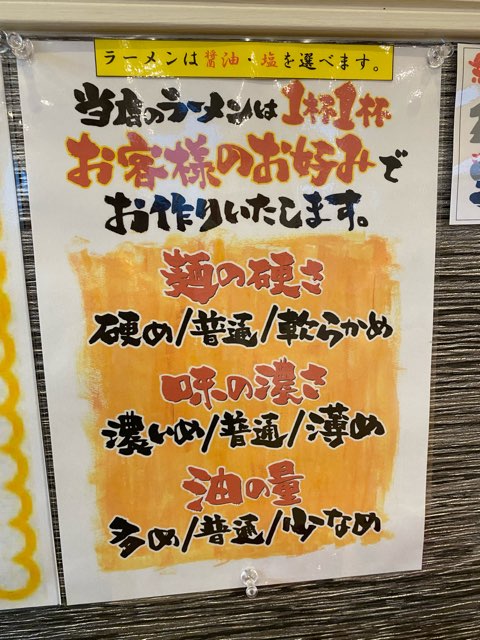 ラーメンは醤油・塩を選べます。
当店のラーメンは1杯1杯
お客様のお好みで
お作りいたします。
麺の硬さ
硬め/普通/軟らかめ
味の濃さ
濃いめ/普通/薄め
油の量
多め/普通/少なめ